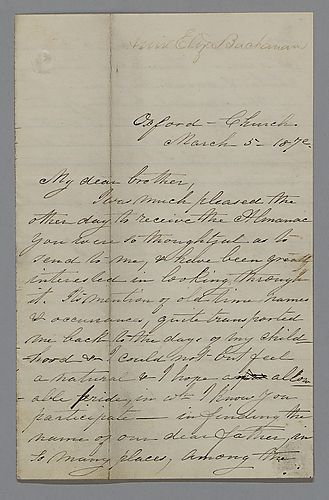 Miss Eliza Buchanan
Oxford - Church.
March 5 - 187
My dear brother,
I was much pleased the
other day to receive the Almanac
you were so thoughtful as to
send to me, & have been greatly
interested in looking through
it. Its mention of old time names
& occurrences quite transported
me back to the days of my child
hood & I could not but feel
a natural & I hope allow
able pride, in wh I know you
participate - in finding the
name of our dear father, in
so many places, among the